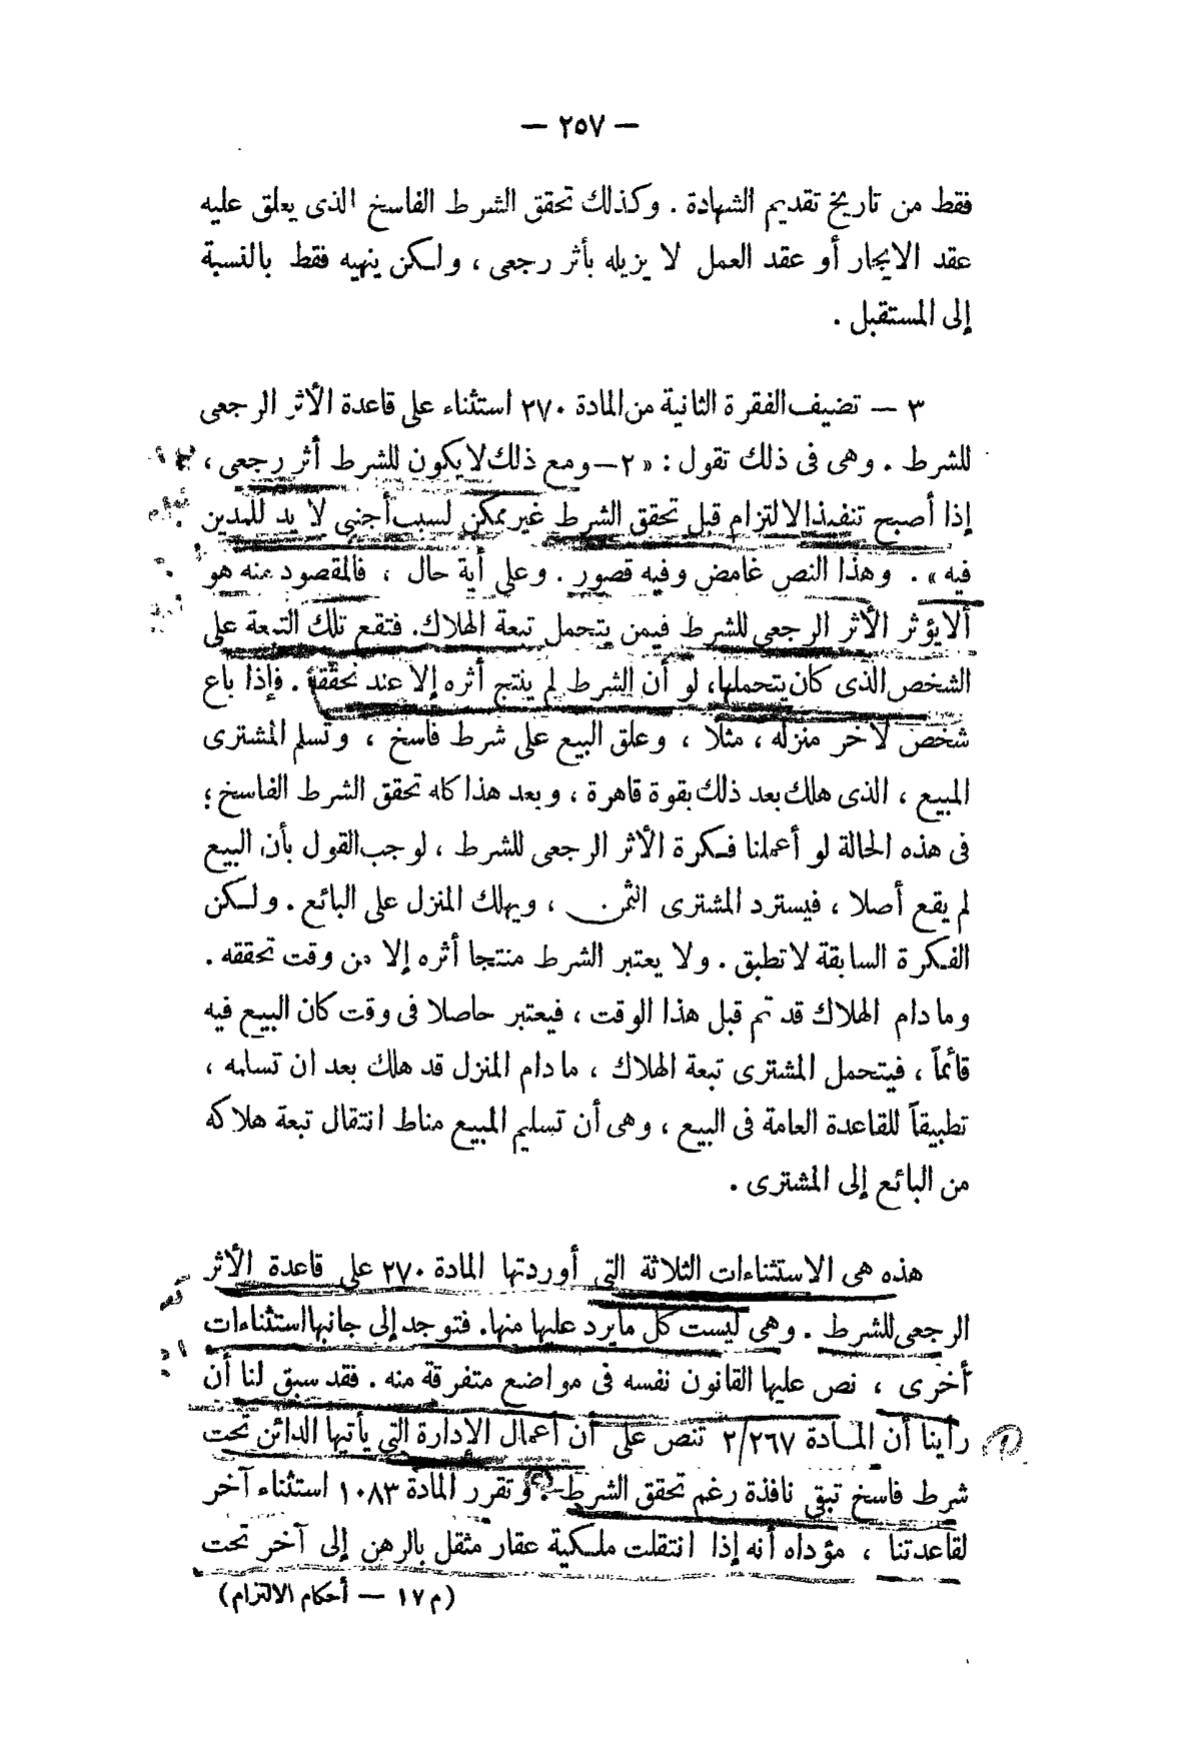 — ٢٥٧ —
فقط من تاريخ تقديم الشهادة . وكذلك تحقق الشرط الفاسخ الذى يعلق عليه
عقد الايجار أو عقد العمل لا يزيله بأثر رجعى ، ولكن ينهيه فقط بالنسبة
إلى المستقبل .
٣ — تضيف الفقرة الثانية من المادة ٢٧٠ استثناء على قاعدة الأثر الرجعى
للشرط . وهى فى ذلك تقول : « ٢ — ومع ذلك لا يكون للشرط أثر رجعى ،
إذا أصبح تنفيذ الالتزام قبل تحقق الشرط غير ممكن لسبب أجنبى لا يد للمدين
فيه » . وهذا النص غامض وفيه قصور . وعلى أية حال ، فالمقصود منه هو
ألا يؤثر الأثر الرجعى للشرط فيمن يتحمل تبعة الهلاك . فتقع تلك التبعة على
الشخص الذى كان يتحملها ، لو أن الشرط لم ينتج أثره إلا عند تحققه . فإذا باع
شخص لآخر منزله ، مثلا ، وعلق البيع على شرط فاسخ ، وتسلم المشترى
المبيع ، الذى هلك بعد ذلك بقوة قاهرة ، وبعد هذا كله تحقق الشرط الفاسخ ؛
فى هذه الحالة لو أعملنا فكرة الأثر الرجعى للشرط ، لوجب القول بأن البيع
لم يقع أصلا ، فيسترد المشترى الثمن ، ويهلك المنزل على البائع . ولكن
الفكرة السابقة لا تطبق . ولا يعتبر الشرط منتجا أثره إلا من وقت تحققه .
وما دام الهلاك قد تم قبل هذا الوقت ، فيعتبر حاصلا فى وقت كان البيع فيه
قائماً ، فيتحمل المشترى تبعة الهلاك ، ما دام المنزل قد هلك بعد ان تسلمه ،
تطبيقاً للقاعدة العامة فى البيع ، وهى أن تسليم المبيع مناط انتقال تبعة هلاكه
من البائع إلى المشترى .
هذه هى الاستثناءات الثلاثة التى أوردتها المادة ٢٧٠ على قاعدة الأثر
الرجعى للشرط . وهى ليست كل ما يرد عليها منها . فتوجد إلى جانبها استثناءات
أخرى ، نص عليها القانون نفسه فى مواضع متفرقة منه . فقد سبق لنا أن
رأينا أن المادة ٢/٢٦٧ تنص على أن أعمال الإدارة التى يأتيها الدائن تحت
شرط فاسخ تبقى نافذة رغم تحقق الشرط . وتقرر المادة ١٠٨٣ استثناء آخر
لقاعدتنا ، مؤداه أنه إذا انتقلت ملكية عقار مثقل بالرهن إلى آخر تحت
(م ١٧ — أحكام الالتزام)